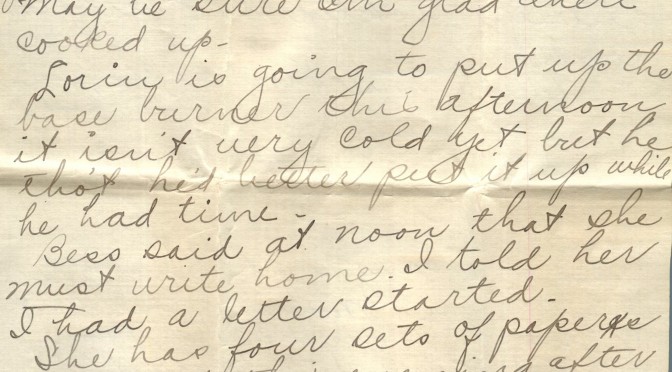 May be sure I'm glad
cooked up-
Lorin is going to put up the
base burner this afternoon
it isn't very cold yet but he
tho't he'd better put it up while
he had time-
Bess said at noon that she
must write home. I told her
I had a letter started-
She has four sets of papers
after